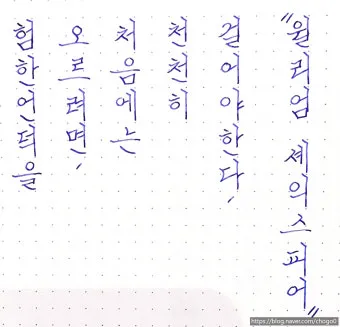 험한언덕을
오르려면,
처음에는
천천히
걸어야한다.
"윌리엄 셰익스피어"
https://blog.naver.com/chogo0